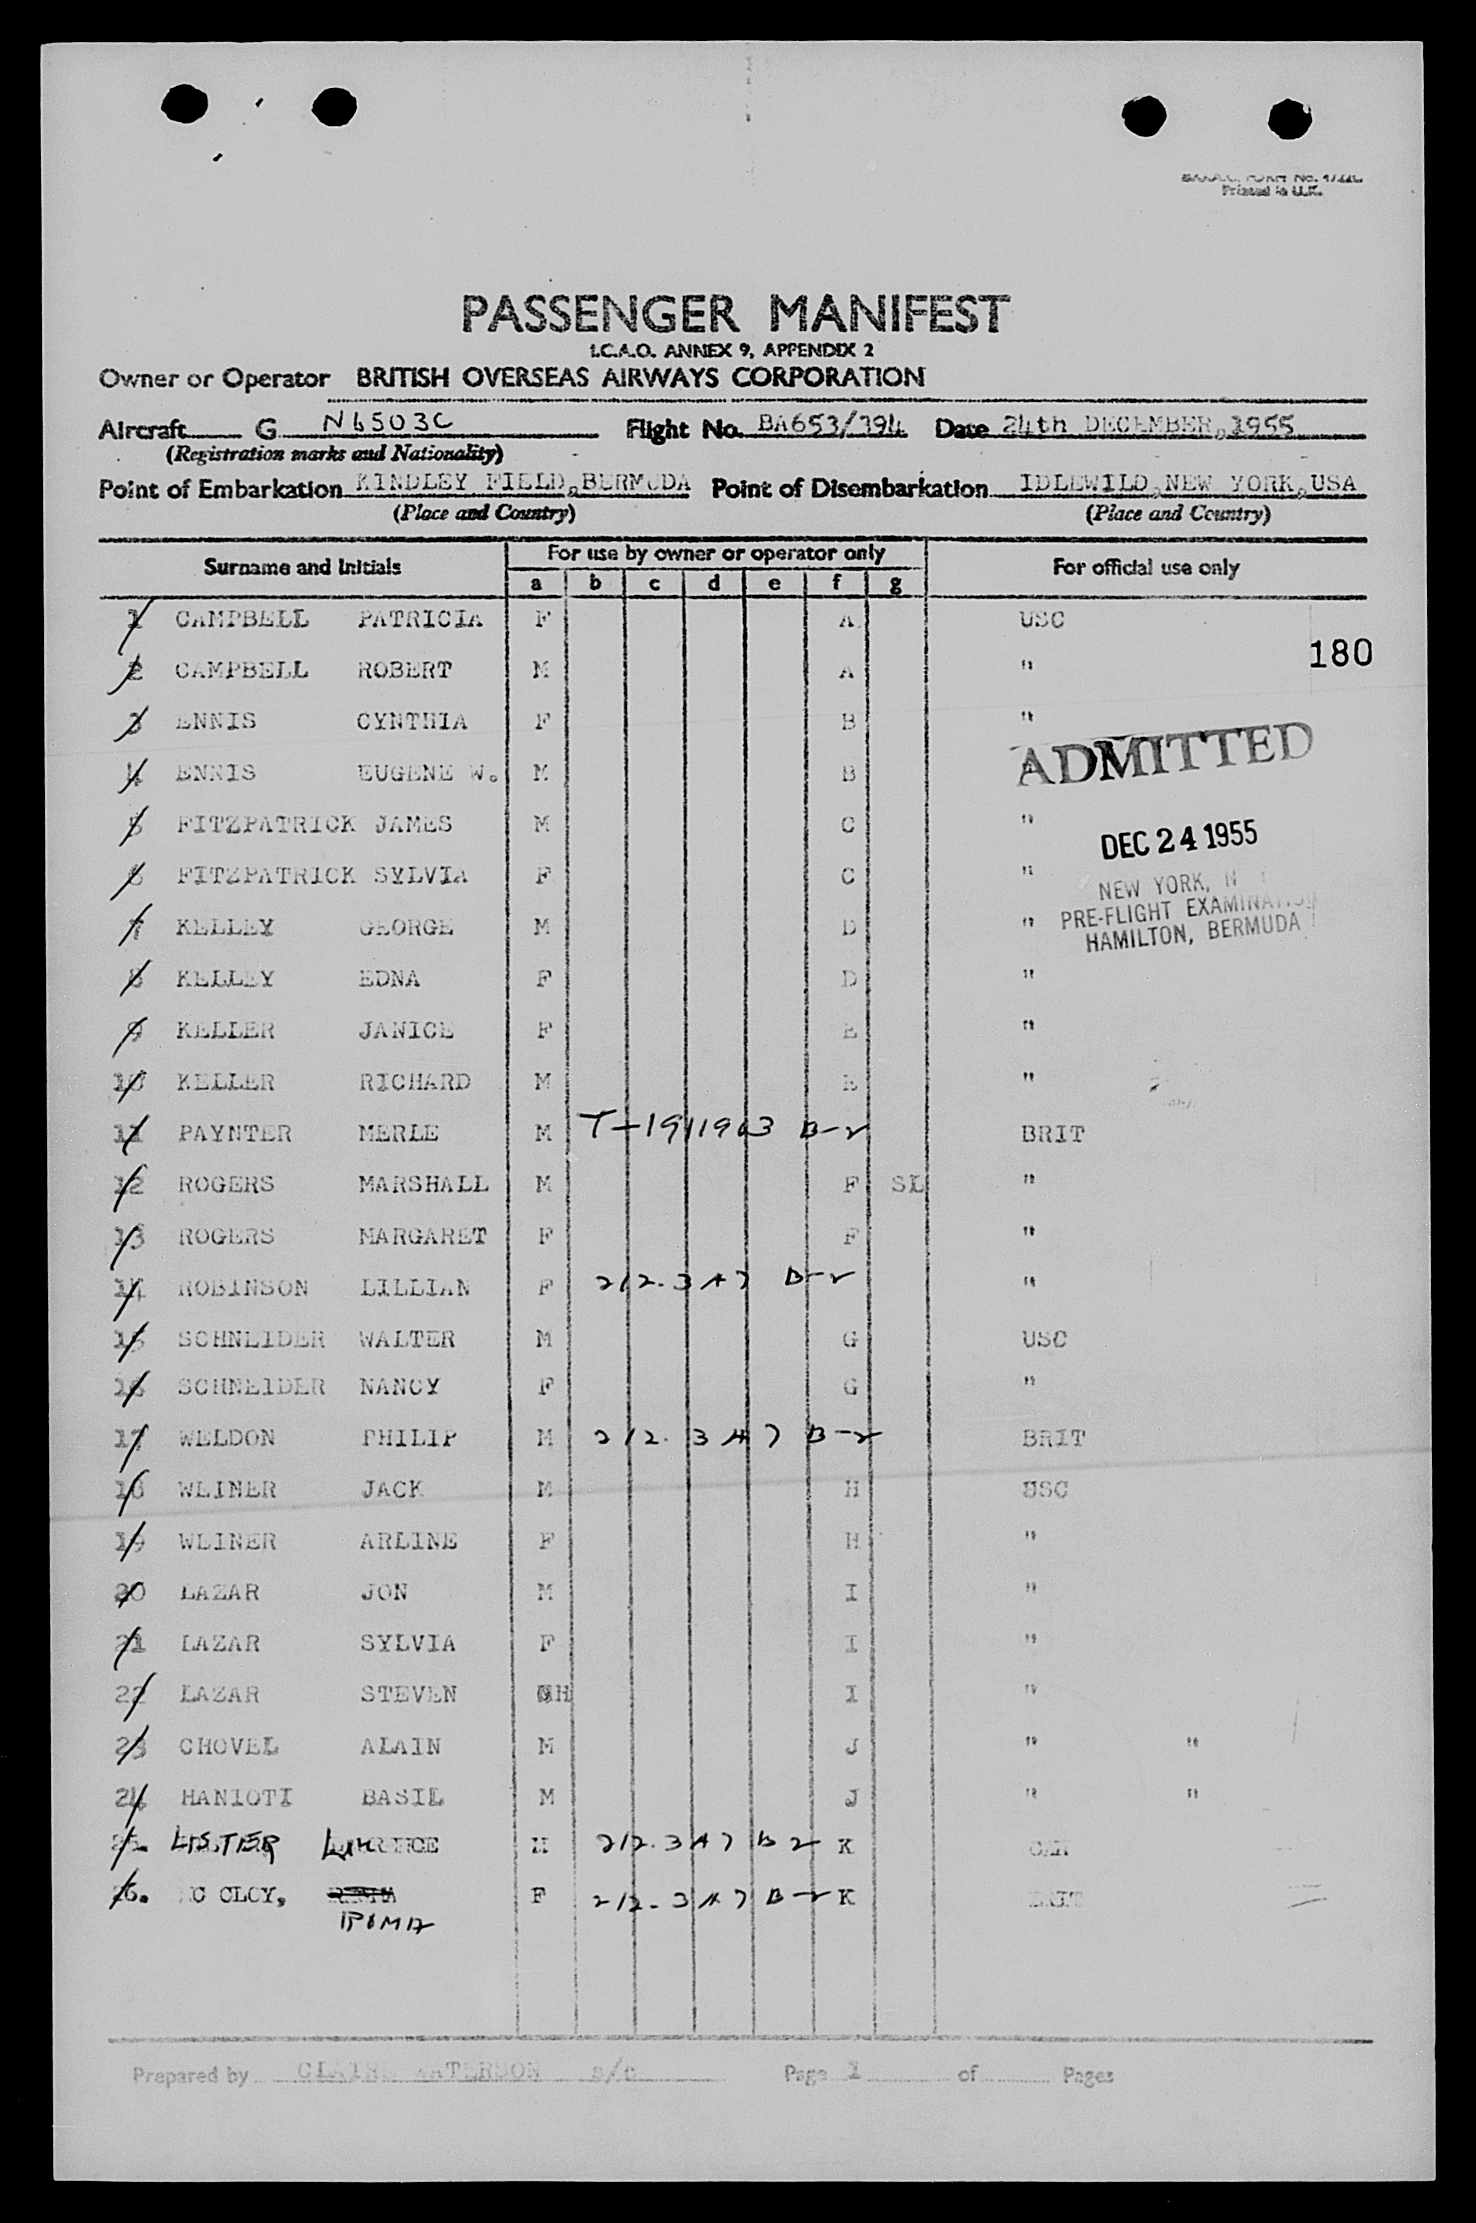 Printed in U.K.
PASSENGER MANIFEST
I.C.A.O. ANNEX 9, APPENDIX 2
Owner or Operator BRITISH OVERSEAS AIRWAYS CORPORATION
Aircraft G N6503C Flight No. BA653/394 Date 24th DECEMBER, 1955
(Registration marks and Nationality)
Point of Embarkation KINDLEY FIELD, BERMUDA Point of Disembarkation IDLEWILD, NEW YORK, USA
(Place and Country) (Place and Country)
Surname and Initials For use by owner or operator only For official use only
a b c d e f g
1 CAMPBELL PATRICIA F A USC
180
2 CAMPBELL ROBERT M A "
3 ENNIS CYNTHIA F B "
ADMITTED
4 ENNIS EUGENE W. M B
5 FITZPATRICK JAMES M C "
DEC 24 1955
6 FITZPATRICK SYLVIA F C "
NEW YORK, N
PRE-FLIGHT EXAMINATION
7 KELLEY GEORGE M D "
HAMILTON, BERMUDA
8 KELLEY EDNA F D "
9 KELLER JANICE F E "
10 KELLER RICHARD M E "
11 PAYNTER MERLE M T-1911963 B-2 BRIT
12 ROGERS MARSHALL M F SL "
13 ROGERS MARGARET F F "
14 ROBINSON LILLIAN F 212.3A7 B-2 "
15 SCHNEIDER WALTER M G USC
16 SCHNEIDER NANCY F G "
17 WELDON PHILIP M 212.3A7 B-2 BRIT
18 WEINER JACK M H USC
19 WEINER ARLINE F H "
20 LAZAR JON M I "
21 LAZAR SYLVIA F I "
22 LAZAR STEVEN CH I "
23 CHOVEL ALAIN M J " "
24 HANIOTI BASIL M J " "
25. LISTER M 212.3A7 B 2 K CAN
26. MC CLOY, F 212.3A7 B-2 K BRIT
Prepared by CLAIRE s/c Page 1 of Pages